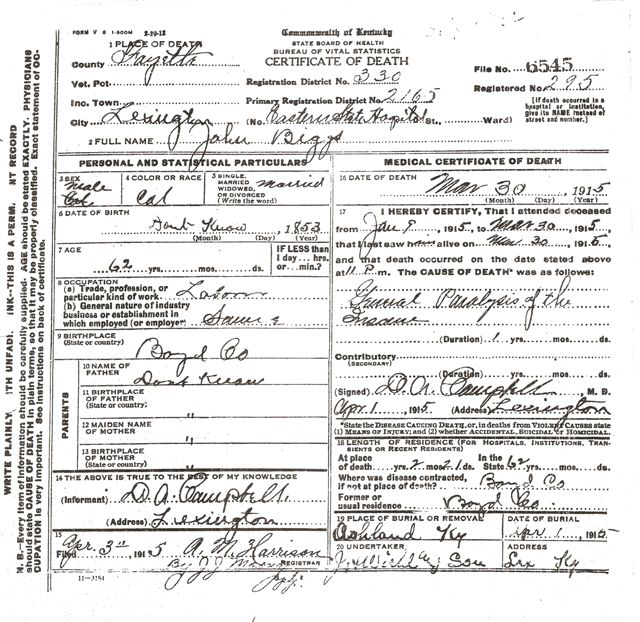 FORM V S 1-500M 2-29-12
Commonwealth of Kentucky
STATE BOARD OF HEALTH
BUREAU OF VITAL STATISTICS
CERTIFICATE OF DEATH
1 PLACE OF DEATH
County Fayette
Vot. Pct.
Inc. Town
City Lexington (No. Eastern State Hospital St., Ward)
Registration District No. 330
Primary Registration District No. 2165
File No. 6545
Registered No. 295
[If death occurred in a hospital or institution, give its NAME instead of street and number.]
2 FULL NAME John Biggs
PERSONAL AND STATISTICAL PARTICULARS
3 SEX Male
4 COLOR OR RACE Col
5 SINGLE, MARRIED, WIDOWED, OR DIVORCED (Write the word) Married
6 DATE OF BIRTH Dont Know, 1853
(Month) (Day) (Year)
7 AGE 62 yrs. mos. ds.
IF LESS than 1 day... hrs. or... min.?
8 OCCUPATION
(a) Trade, profession, or particular kind of work Labor
(b) General nature of industry business or establishment in which employed (or employer) Same
9 BIRTHPLACE
(State or country) Boyd Co
PARENTS
10 NAME OF FATHER Dont Know
11 BIRTHPLACE OF FATHER (State or country) "
12 MAIDEN NAME OF MOTHER "
13 BIRTHPLACE OF MOTHER (State or country) "
14 THE ABOVE IS TRUE TO THE BEST OF MY KNOWLEDGE
(Informant) D. A. Campbell.
(Address) Lexington
15
Filed Apr. 3rd 1915 A. M. Harrison
REGISTRAR
By J.J.
11-3184
MEDICAL CERTIFICATE OF DEATH
16 DATE OF DEATH Mar 30, 1915
(Month) (Day) (Year)
17 I HEREBY CERTIFY, That I attended deceased
from Jan 9 1915, to Mar 30, 1915,
that I last saw him alive on Mar 30, 1915,
and that death occurred on the date stated above
at 11 P.m. The CAUSE OF DEATH* was as follows:
General Paralysis of the
Insane
(Duration) 1 yrs. mos. ds.
Contributory
(SECONDARY)
(Duration) yrs. mos. ds.
(Signed) D. A. Campbell M. D.
Apr. 1, 1915 (Address) Lexington
*State the DISEASE CAUSING DEATH, or, in deaths from VIOLENT CAUSES state (1) MEANS OF INJURY; and (2) whether ACCIDENTAL, SUICIDAL or HOMICIDAL.
18 LENGTH OF RESIDENCE (FOR HOSPITALS, INSTITUTIONS, TRANSIENTS OR RECENT RESIDENTS)
At place of death yrs. 2 mos. 21 ds. In the State 62
Where was disease contracted, if not at place of death? Boyd Co
Former or usual residence Boyd Co
19 PLACE OF BURIAL OR REMOVAL Ashland Ky
DATE OF BURIAL Apr 1, 1915
20 UNDERTAKER Son
ADDRESS Lex Ky
WRITE PLAINLY, ITH UNFADI. INK—THIS IS A PERM. NT RECORD
N. B.—Every item of information should be carefully supplied. AGE should be stated EXACTLY. PHYSICIANS
should state CAUSE OF DEATH in plain terms, so that it may be properly classified. Exact statement of OC-
CUPATION is very important. See instructions on back of certificate.